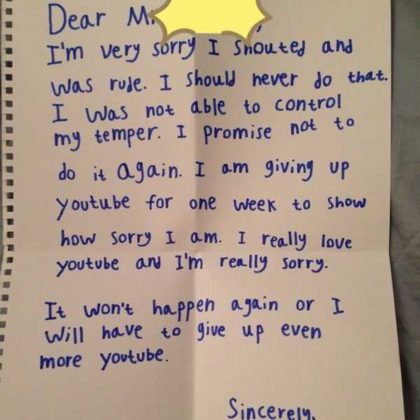 Dear M
I'm very sorry I shouted and
was rude. I should never do that.
I was not able to control
my temper. I promise not to
do it again. I am giving up
youtube for one week to show
how sorry I am. I really love
youtube and I'm really sorry.
It won't happen again or I
will have to give up even
more youtube.
Sincerely,